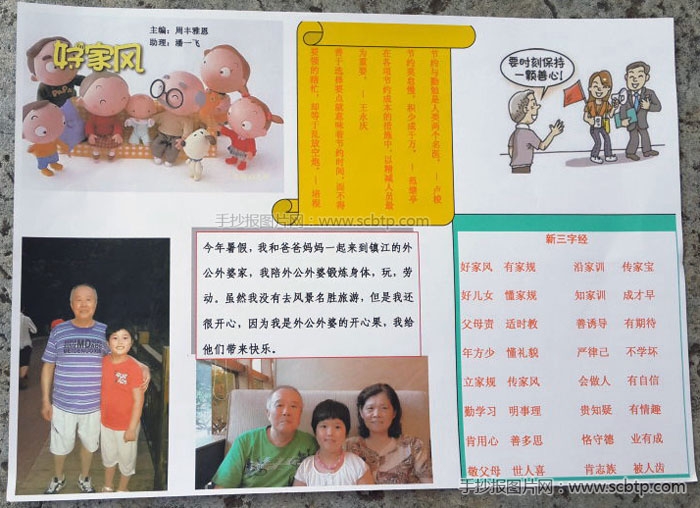 主编：周丰雅恩
助理：潘一飞
好家风
节约与勤勉是人类两个名医。——卢梭
节约莫怠慢，积少成千万。——范继亭
在各项节约的成本的措施中，以精减人员最
为重要。——王永庆
善于选择要点就意味着节约时间，而不得
要领的瞎忙，却等于乱放空炮。——培根
要时刻保持
一颗善心！
手抄报图片网：www.scbtp.com
今年暑假，我和爸爸妈妈一起来到镇江的外
公外婆家，我陪外公外婆锻炼身体，玩，劳
动。虽然我没有去风景名胜旅游，但是我还
很开心，因为我是外公外婆的开心果，我给
他们带来快乐。
新三字经
好家风 有家规 沿家训 传家宝
好儿女 懂家规 知家训 成才早
父母责 适时教 善诱导 有期待
年方少 懂礼貌 严律己 不学坏
立家规 传家风 会做人 有自信
勤学习 明事理 贵知疑 有情趣
肯用心 善多思 恪守德 业有成
敬父母 世人喜 肯志族 被人齿
手抄报图片网：www.scbtp.com